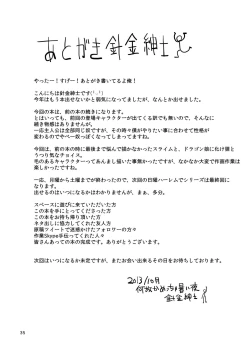 あとがき針金紳士
やったー！すげー！あとがき書いてるよ俺！
こんにちは針金紳士です(´-`)
今年はもう本出せないかと弱気になってましたが、なんとか出せました。
今回の本は、前の本の続きになります。
とはいっても、前回の登場キャラクターが出てくる訳でも無いので、そんなに
続き物感はありませんが。
一応主人公は全部同じ奴ですが、その時々僕がやりたい事に合わせて性格が
変わるのでやべー奴っぽくなってしまってますね。
今回は、前の本の時に最後まで悩んで描かなかったスライムと、ドラゴン娘に化け猫と
うっつ気なタイス。
毛のあるキャラクターってあんまし描いた事無かったですが、なかなか大変で作画作業は
楽しかったです。
一応、日曜から土曜までが終わったので、次回の日曜ハーレムでシリーズは最終回に
なります。
出せるのはいつになるかはわかりませんが、まぁ、多分。
スペースに遊びに来ていただいた方
この本を手にとってくださった方
この本をお持ち帰り頂いた方
ネタ出しに協力してくれた友人の方
原稿ツイートで迷惑かけたフォロワーの方々
作業Skype手伝ってくれた人々
皆さんあっての本の完成です。ありがとうございます。
次回はいつになるか未定ですが、またお会い出来るその日をお待ちしております。
2013/10月
何故かめっちゃ暑い夜
針金紳士
35